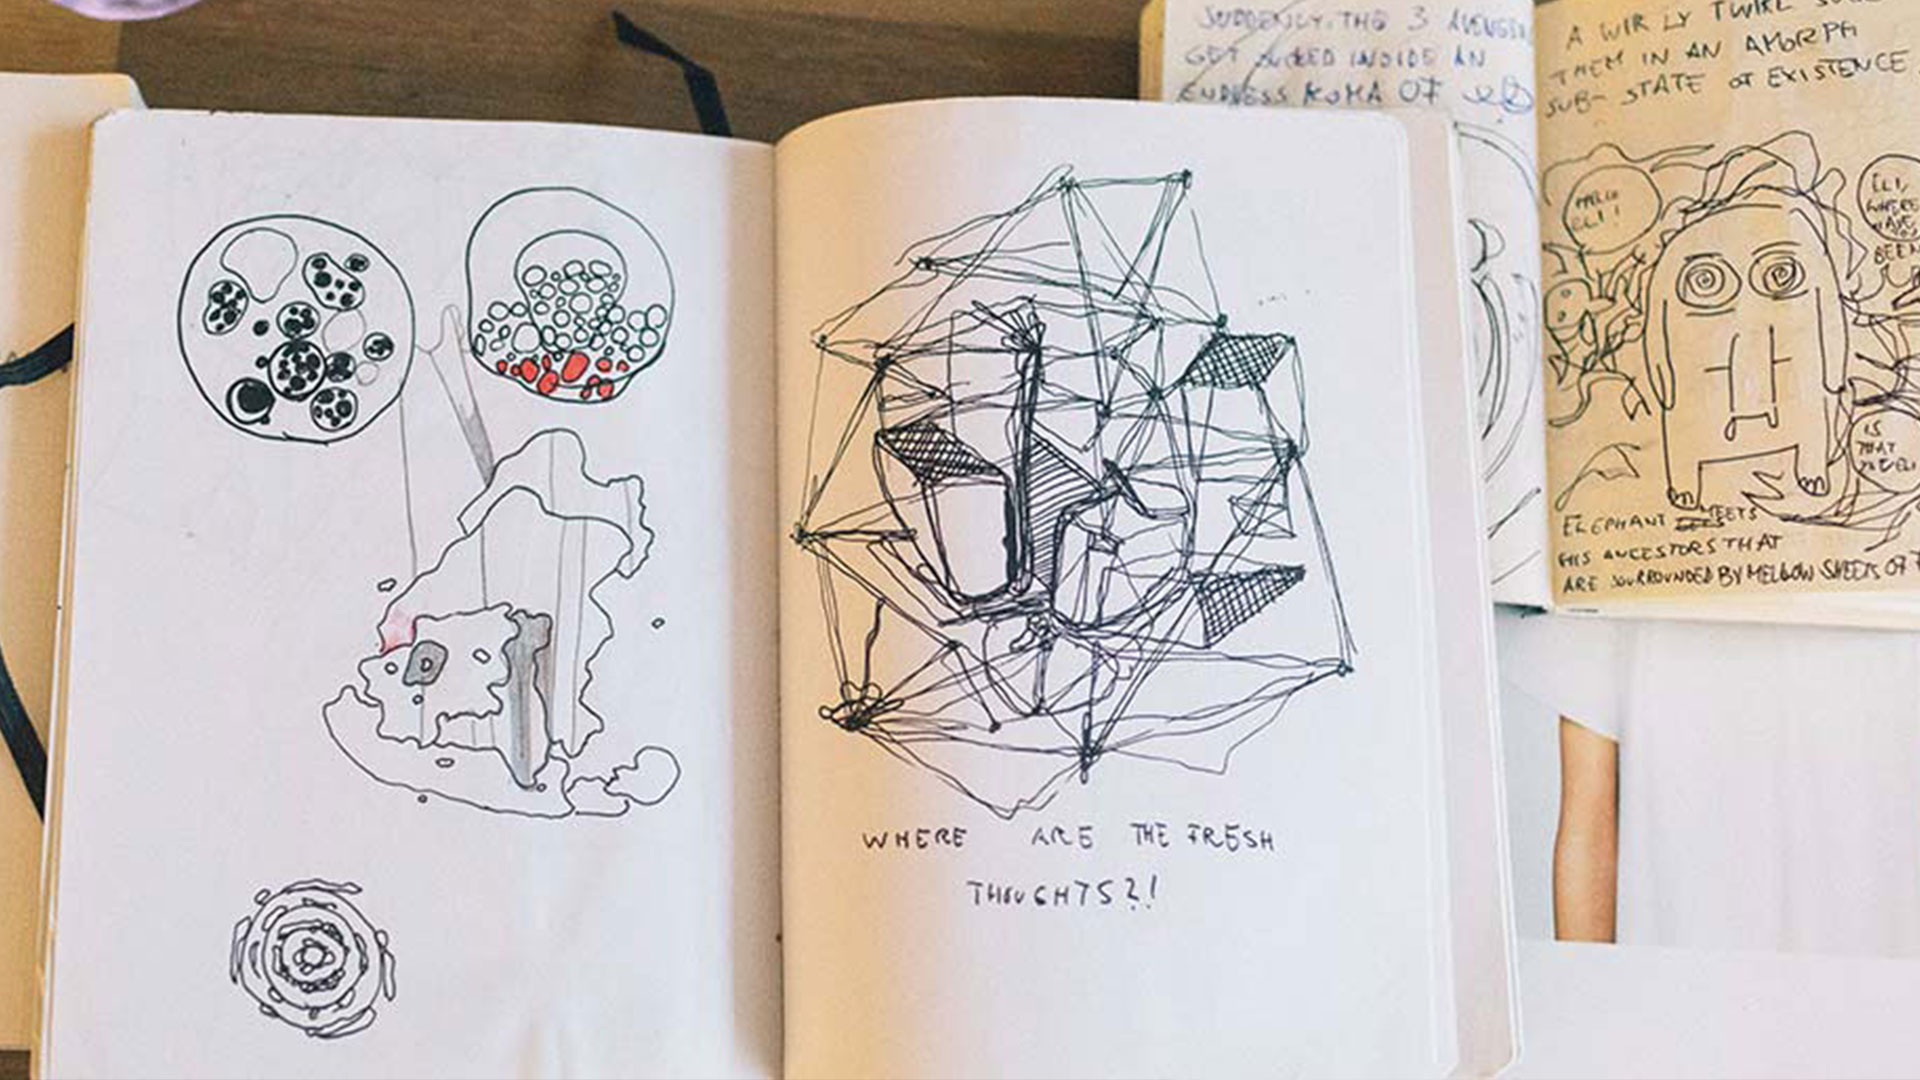 SUDDENLY THE 3
GET SUCKED INSIDE AN
ENDLESS KOMA OF
A WIRLY TWIRL
THEM IN AN AMORPH
SUB- STATE OF EXISTENCE
HELLO
ELI!
ELI,
WHERE
HAVE
BEEN
IS
THAT
ELEPHANT MEETS
HIS ANCESTORS THAT
ARE SOURROUNDED BY MELLOW SHEETS OF
WHERE ARE THE FRESH
THOUGHTS?!